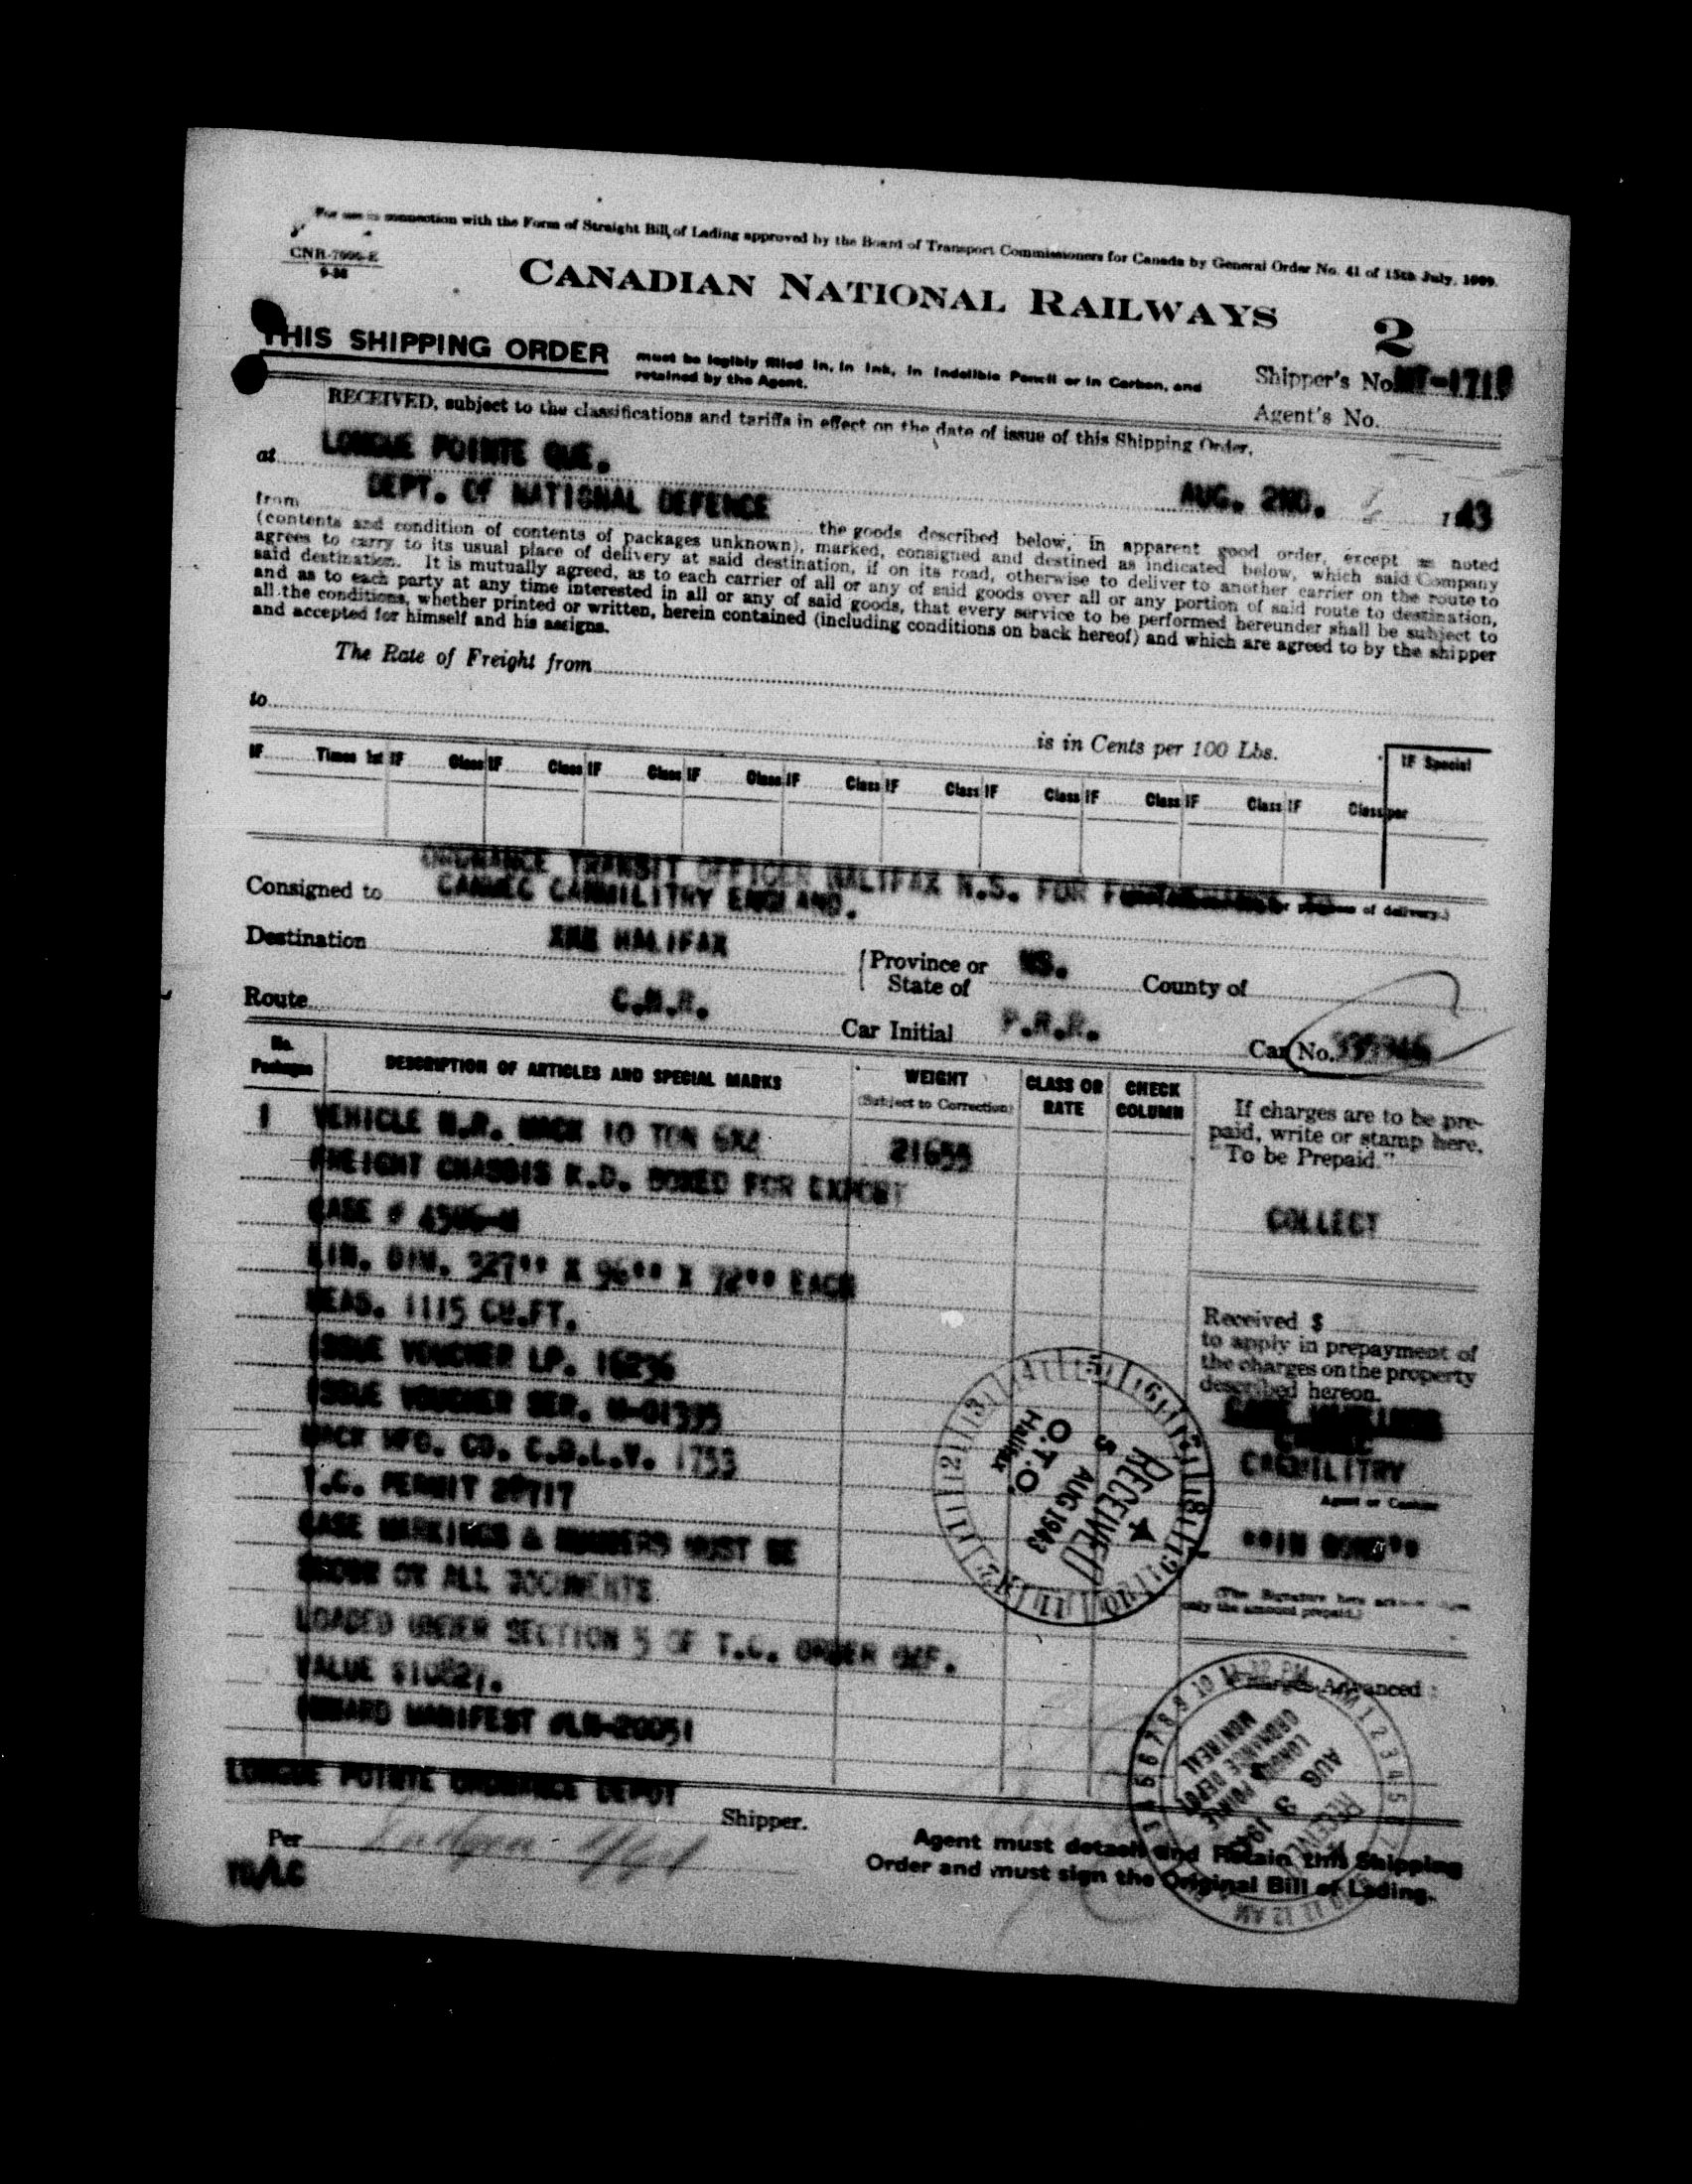 For use in connection with the Form of Straight Bill of Lading approved by the Board of Transport Commissioners for Canada by General Order No. 41 of 15th July, 1909.
9-38
CANADIAN NATIONAL RAILWAYS
2
THIS SHIPPING ORDER must be legibly filled in, in Ink, in Indelible Pencil or in Carbon, and retained by the Agent.
Shipper's No.
Agent's No.
RECEIVED, subject to the classifications and tariffs in effect on the date of issue of this Shipping Order,
at LONGUE POINTE QUE. AUG. 2ND. 1 43
from DEPT. OF NATIONAL DEFENCE the goods described below, in apparent good order, except as noted
(contents and condition of contents of packages unknown), marked, consigned and destined as indicated below, which said Company
agrees to carry to its usual place of delivery at said destination, if on its road, otherwise to deliver to another carrier on the route to
said destination. It is mutually agreed, as to each carrier of all or any of said goods over all or any portion of said route to destination,
and as to each party at any time interested in all or any of said goods, that every service to be performed hereunder shall be subject to
all the conditions, whether printed or written, herein contained (including conditions on back hereof) and which are agreed to by the shipper
and accepted for himself and his assigns.
The Rate of Freight from
to
is in Cents per 100 Lbs.
IF Times 1st IF Class IF Class IF Class IF Class IF Class IF Class IF Class IF Class IF Class IF Class per
IF Special
ORDNANCE TRANSIT OFFICER HALIFAX N.S. FOR
Consigned to CANMILITRY ENGLAND.
of delivery.)
Destination HALIFAX
Province or State of NS. County of
Route C.N.R. Car Initial P.R.R. Car No.
No. Packages
DESCRIPTION OF ARTICLES AND SPECIAL MARKS
WEIGHT (Subject to Correction)
CLASS OR RATE
CHECK COLUMN
1 VEHICLE N.R. MACK 10 TON 6X4 21655
FREIGHT CHASSIS K.D. BOXED FOR EXPORT
CASE #
DIM. 327'' X 96'' X 72'' EACH
MEAS. 1115 CU.FT.
ISSUE VOUCHER LP. 16236
ISSUE VOUCHER SER. M-01395
MACK MFG. CO. C.D.L.V. 1753
T.C. PERMIT
CASE MARKINGS & NUMBERS MUST BE
SHOWN ON ALL DOCUMENTS
LOADED UNDER SECTION 5 OF T.C. ORDER
VALUE
MANIFEST
If charges are to be pre-
paid, write or stamp here,
"To be Prepaid."
COLLECT
Received $
to apply in prepayment of
the charges on the property
described hereon.
CANMILITRY
Agent or Cashier
"IN BOND"
(The Signature here
only the amount prepaid.)
Charges Advanced
RECEIVED
5 AUG 1943
O.T.O.
Halifax
RECEIVED
AUG 3
LONGUE POINTE
ORDNANCE DEPOT
MONTREAL
LONGUE POINTE ORDNANCE DEPOT
Shipper.
Per
Agent must detach and Retain this Shipping
Order and must sign the Original Bill of Lading.